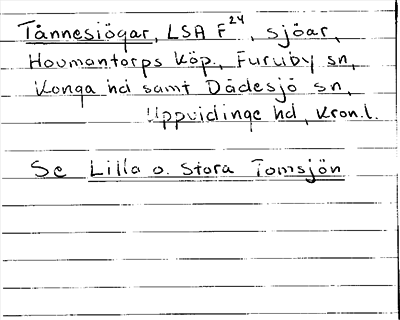 Tånnesiögar, LSA F²⁴, sjöar,
Hovmantorps köp., Furuby sn,
Konga hd samt Dädesjö sn,
Uppvidinge hd, Kron.l.
Se Lilla o. Stora Tomsjön